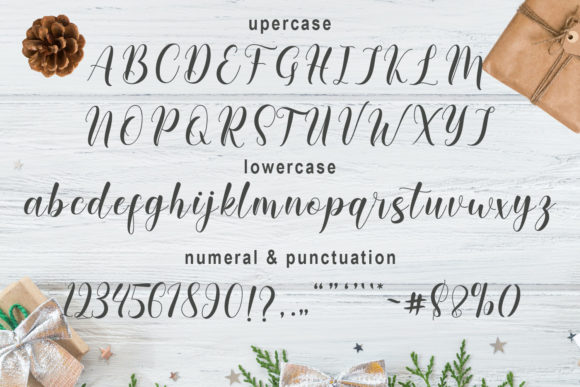 upercase
A B C D E F G H I J K L M
N O P Q R S T U V W X Y Z
lowercase
abcdefghijklmnopqrstuvwxyz
numeral & punctuation
1234567890!?,.,, “”‘’`'* ~#$&%()